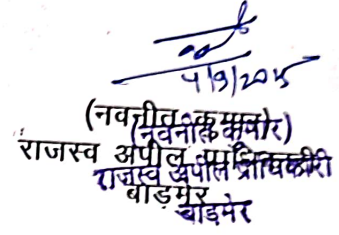 4/9/2015
(नवनीत कुमार)
(नवनीत कुमार)
राजस्व अपील प्राधिकारी
राजस्व अपील प्राधिकारी
बाड़मेर
बाड़मेर